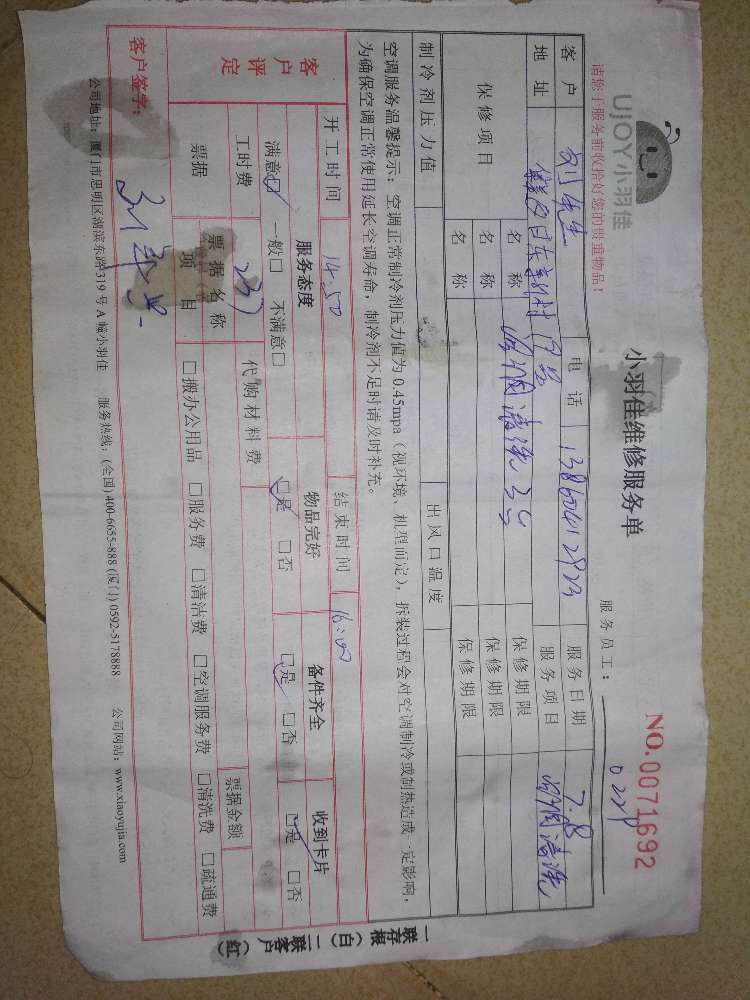 UJOY小羽佳
小羽佳维修服务单
NO.0071692
请您于服务前收拾好您的贵重物品!
服务员工:
客户 刘先生 电话 服务日期 7.8
地址 服务项目 清洗
保修项目 名称 清洗3台 保修期限
名称 保修期限
名称 保修期限
制冷剂压力值 出风口温度
空调服务温馨提示:空调正常制冷剂压力值为0.45mpa(视环境、机型而定),拆装过程会对空调制冷或制热造成一定影响,
为确保空调正常使用延长空调寿命,制冷剂不足时请及时补充。
开工时间 14:50 结束时间 16:00
客户评定 服务态度 物品完好 备件齐全 收到卡片
满意□ 一般□ 不满意□ □是 □否 □是 □否 □是 □否
工时费 237 代购材料费
票据 票据名称 票据金额
项目 □搬办公用品 □服务费 □清洁费 □空调服务费 □清洗费 □疏通费
客户签字:
公司地址:厦门市思明区湖滨东路319号A幢小羽佳 服务热线:(全国)400-6655-888 (厦门) 0592-5178888 公司网站:www.xiaoyujia.com
一联存根(白)二联客户(红)